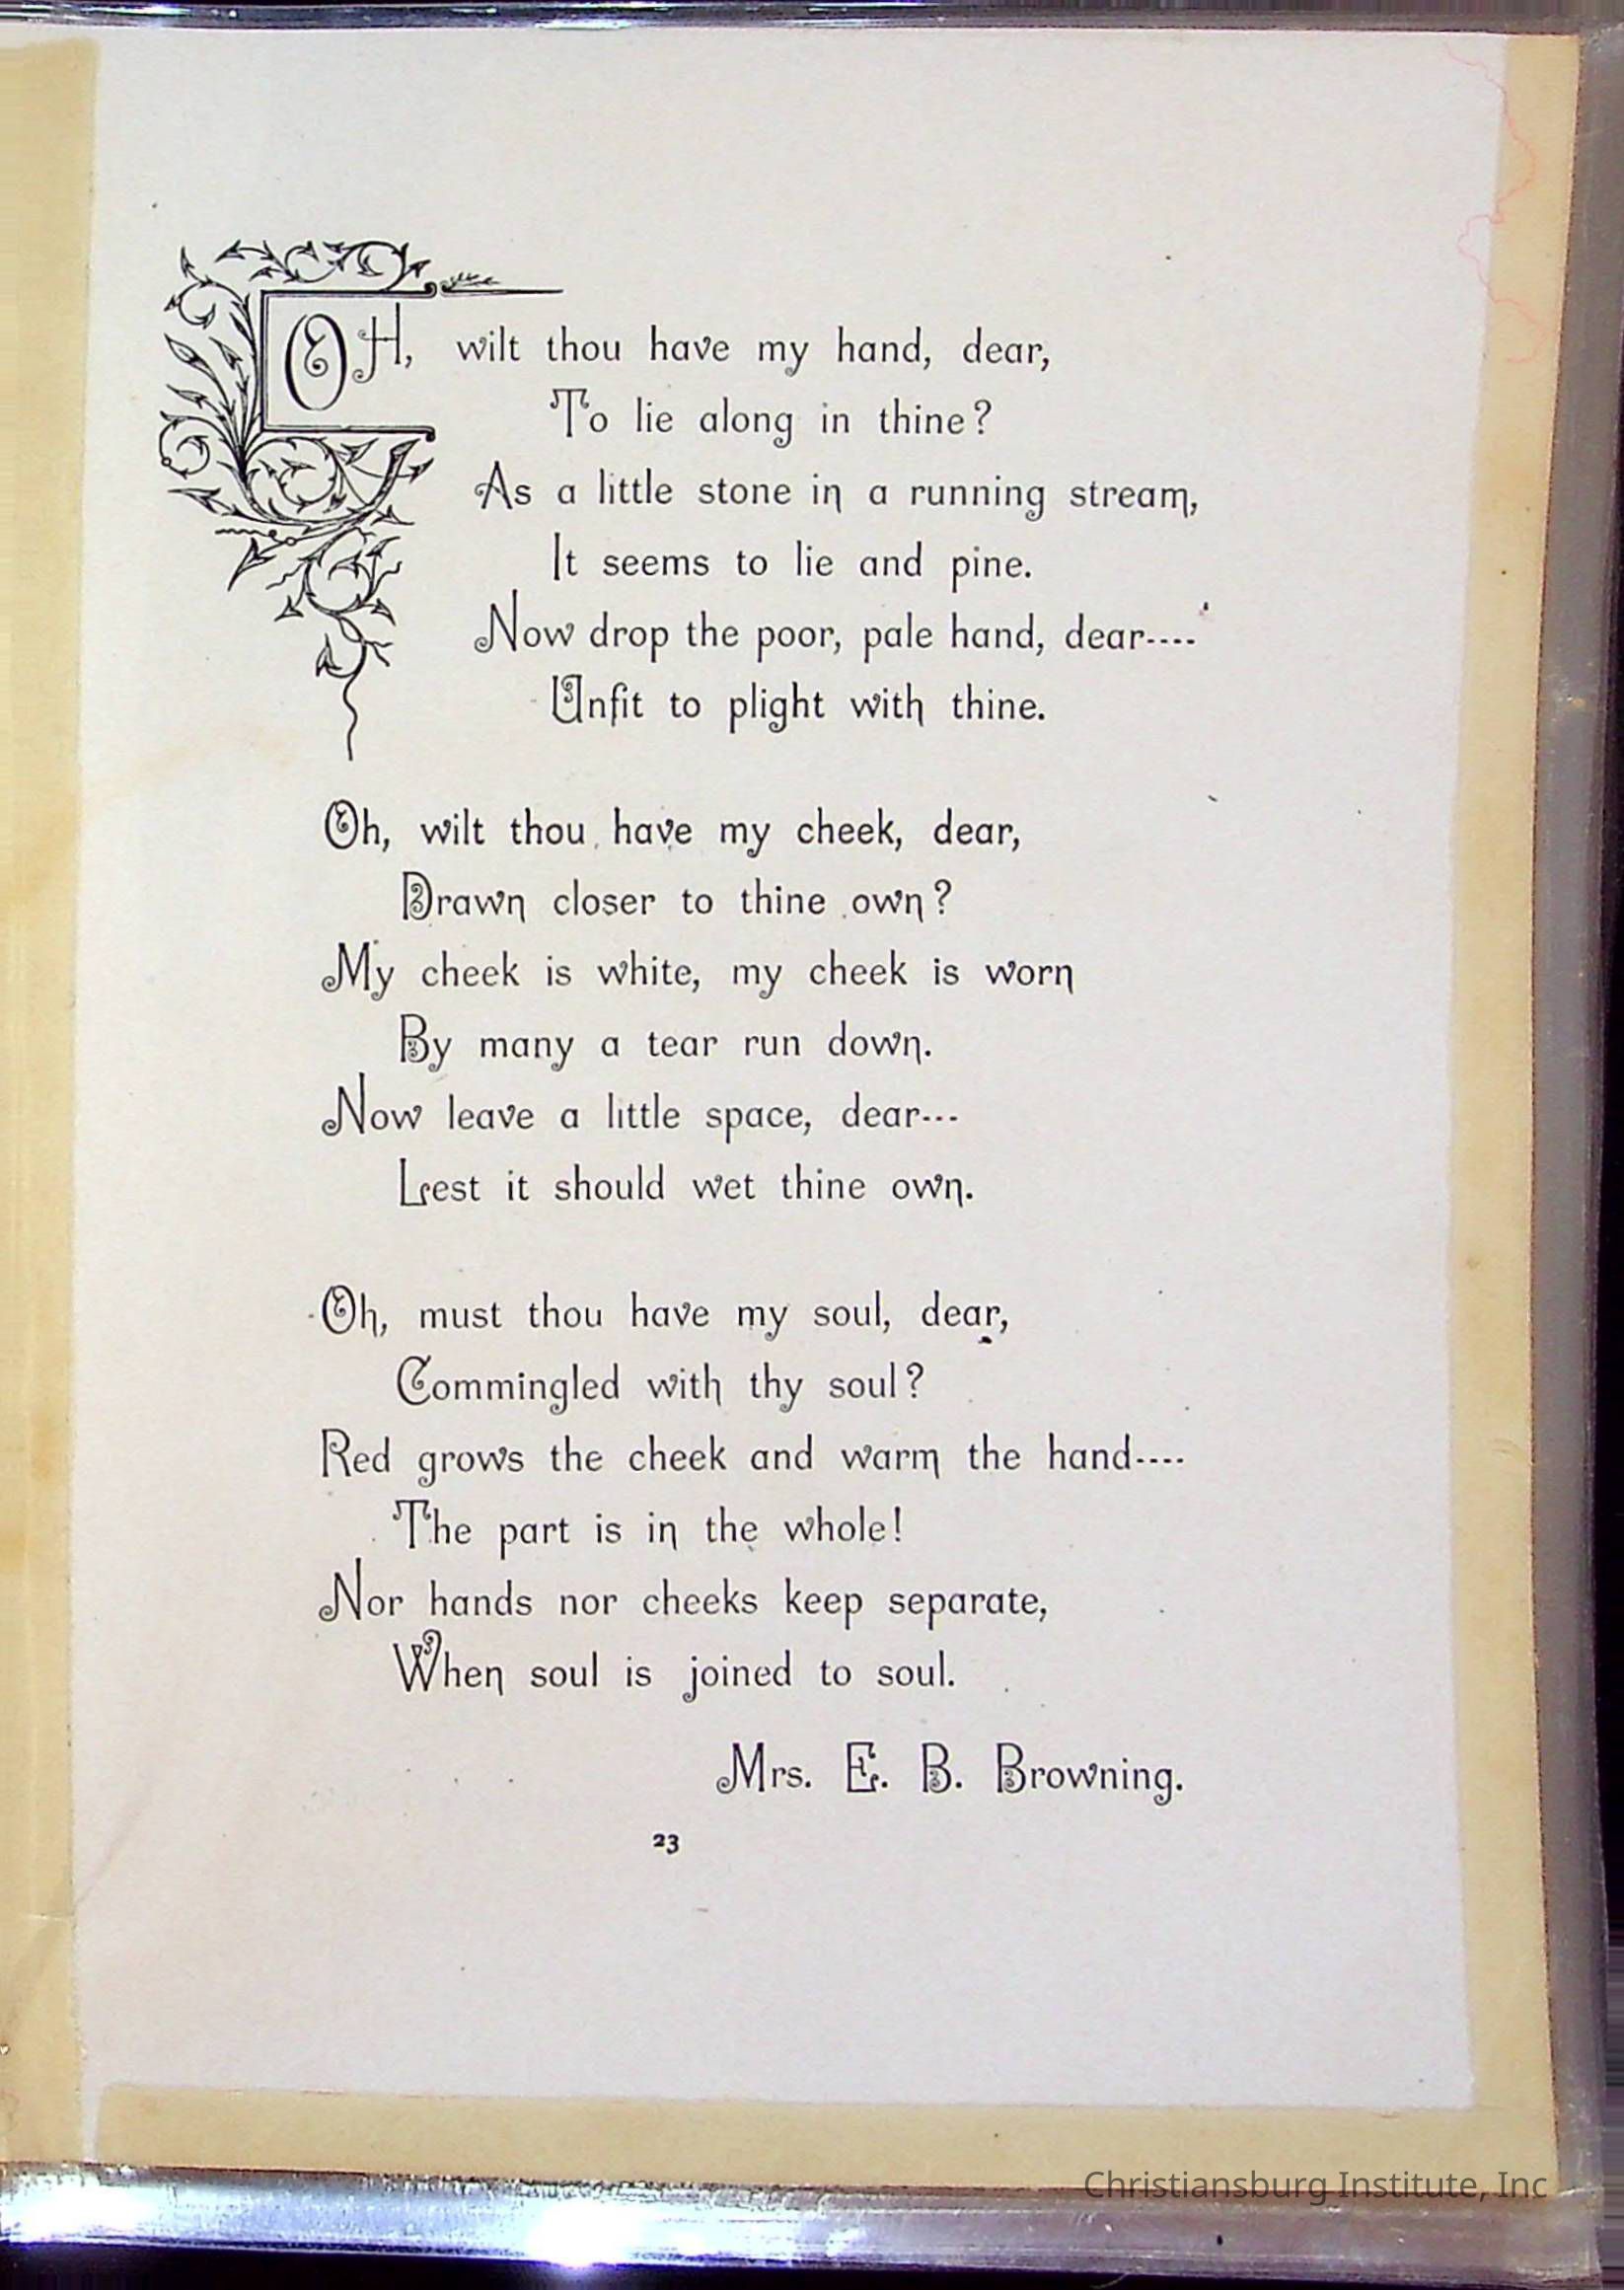 OH, wilt thou have my hand, dear,
To lie along in thine?
As a little stone in a running stream,
It seems to lie and pine.
Now drop the poor, pale hand, dear----
Unfit to plight with thine.
Oh, wilt thou have my cheek, dear,
Drawn closer to thine own?
My cheek is white, my cheek is worn
By many a tear run down.
Now leave a little space, dear---
Lest it should wet thine own.
Oh, must thou have my soul, dear,
Commingled with thy soul?
Red grows the cheek and warm the hand----
The part is in the whole!
Nor hands nor cheeks keep separate,
When soul is joined to soul.
Mrs. E. B. Browning.
23
Christiansburg Institute, Inc